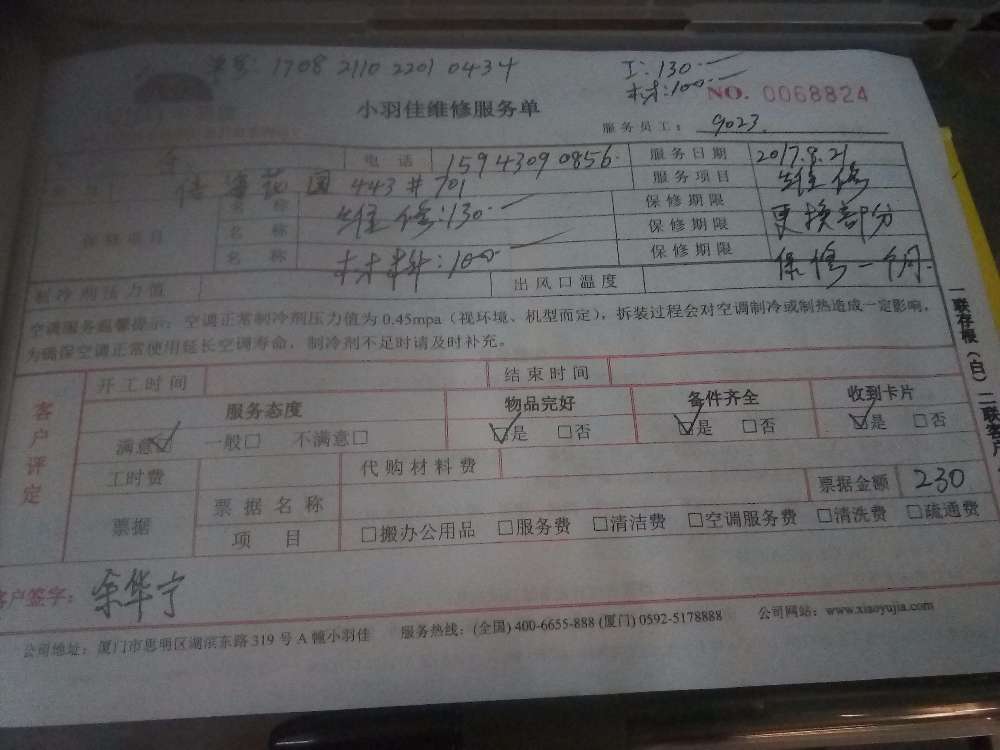 单号: 1708 2110 2201 0434
工: 130.—
材: 100.—
NO. 0068824
小羽佳维修服务单
服务员工: 9023.
电话 15943090856. 服务日期 2017.8.21
花园 443#701 服务项目 维修
名称 维修:130.— 保修期限 更换部分
保修项目 名称 保修期限
名称 材料:100.— 保修期限 保修一个月.
制冷剂压力值 出风口温度
空调服务温馨提示: 空调正常制冷剂压力值为0.45mpa（视环境、机型而定），拆装过程会对空调制冷或制热造成一定影响，
为确保空调正常使用延长空调寿命，制冷剂不足时请及时补充。
客户评定 开工时间 结束时间
服务态度 物品完好 备件齐全 收到卡片
满意☑ 一般□ 不满意□ ☑是 □否 ☑是 □否 ☑是 □否
工时费 代购材料费
票据 票据名称 票据金额 230
项目 □搬办公用品 □服务费 □清洁费 □空调服务费 □清洗费 □疏通费
客户签字: 余华宁
公司地址: 厦门市思明区湖滨东路319号A幢小羽佳 服务热线: (全国) 400-6655-888 (厦门) 0592-5178888 公司网站: www.xiaoyujia.com
一联存根（白）二联客户